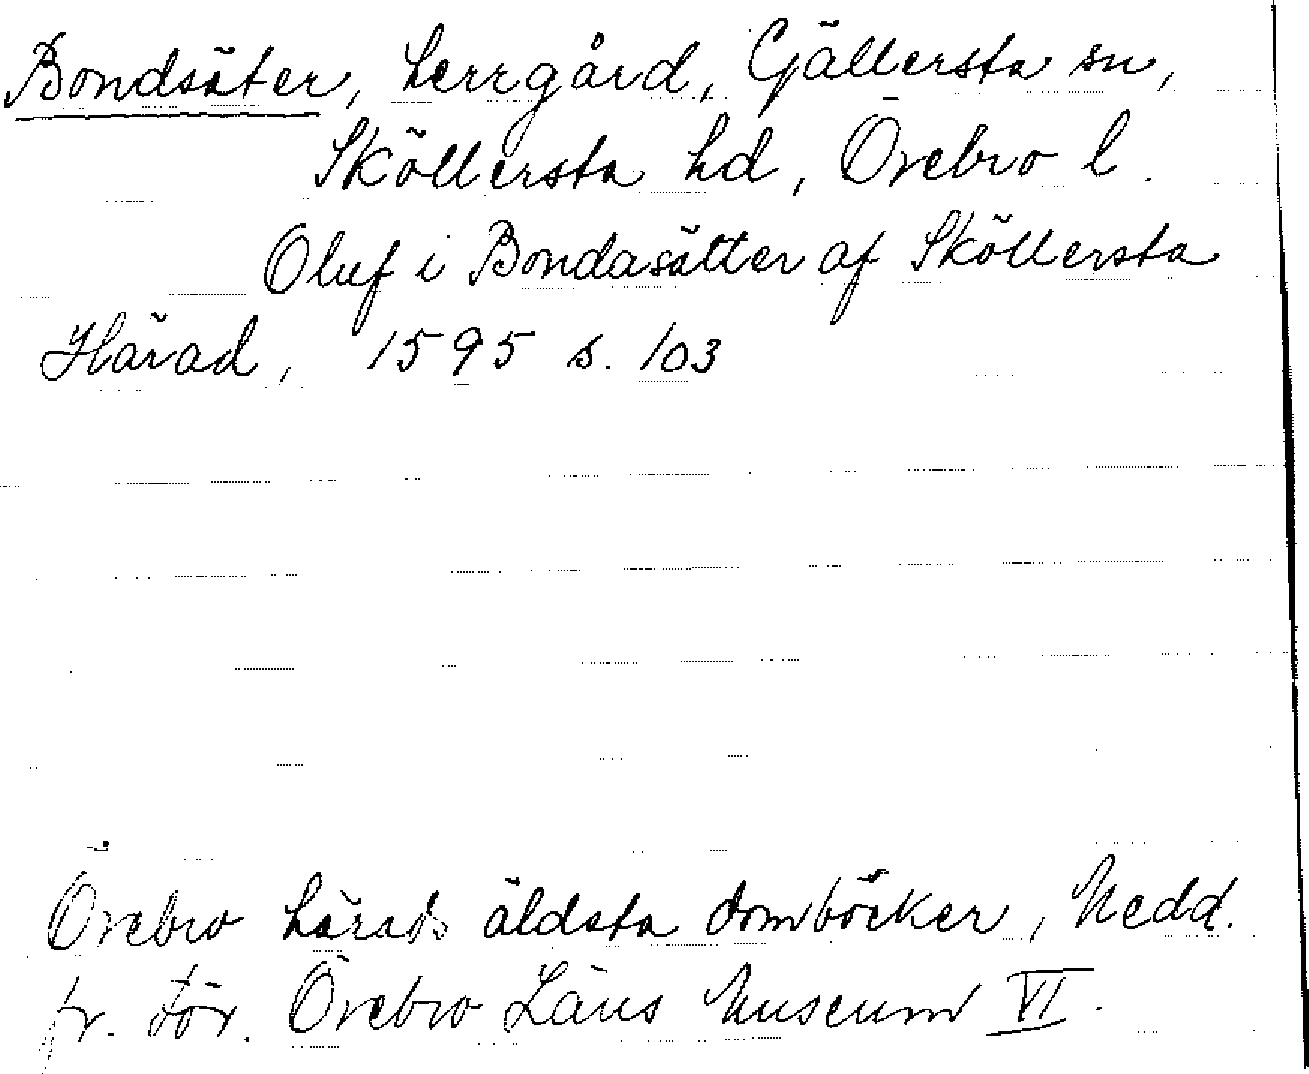 Bondsäter, herrgård, Gällersta sn,
Sköllersta hd, Örebro l.
Oluf i Bondasätter af Sköllersta
Härad, 1595 s. 103
Örebro härads äldsta domböcker, Medd.
fr. För. Örebro Läns Museum VI.